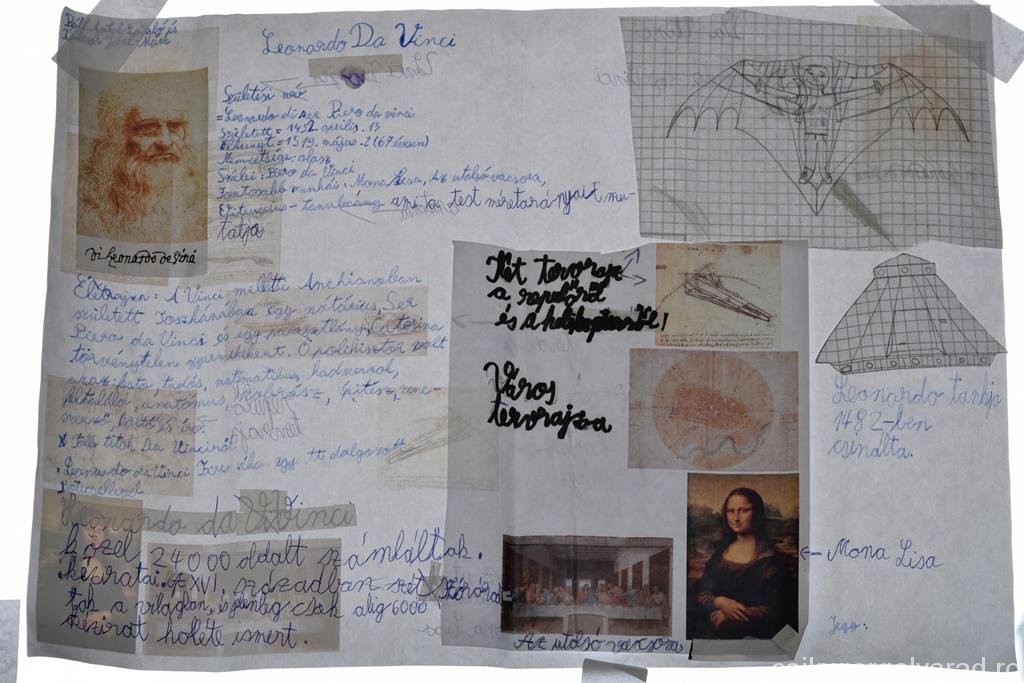 Leonardo Da Vinci
Születési név
=Leonardo di ser Piero da vinci
Született = 1452 április. 15
Elhunyt = 1519. május. 2 (67 évesen)
Nemzetisége: olasz
Szülei: Piero da Vinci
Fontosabb munkái: Mona Lisa, Az utolsó vacsora,
tanulmány ami a test méretarányait mu-
tatja
Életrajza: A Vinci melletti Anchianoban
született Toszkánában egy nótárius, Ser
Piero da Vinci és egy parasztlány, Caterina
törvénytelen gyermekeként. Ő polihisztor volt
tudós, matematikus, hadmérnök,
feltaláló, anatómus, szobrász, építész, zene-
szerző, költő és író.
x Több titok Da Vinciről
• Leonardo da Vinci egy itt dolgozott
Leonardo da Vinci
közel 24000 oldalt számláltak.
kéziratai. A XVI. században szét szóród-
tak a világban, és jelenleg csak alig 6000
kézirat holéte ismert.
Két tervrajz
a repülőről
és a helikopterről!
Város
tervrajza
Leonardo tankja
1482-ben
csinálta.
← Mona Lisa
Az utolsó vacsora
Jegy: